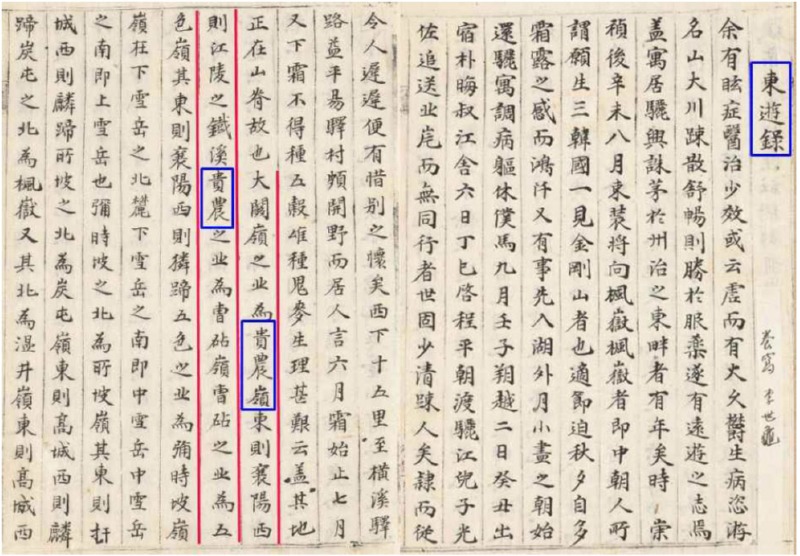 東遊錄
余有眩症醫治少效或云虛而有火久欝生病恣游
名山大川踈散舒暢則勝於服藥遂有遠遊之志焉
盖寓居驪興誅茅於州治之東畔者有年矣時 崇
禎後辛未八月束裝將向楓嶽楓嶽者即中朝人所
謂願生三韓國一見金剛山者也適節迫秋夕自多
霜露之感而鴻汗又有事先入湖外月小晝之朝始
還驪寓調病軀休僕馬九月壬子朔越二日癸丑出
宿朴晦叔江舍六日丁巳啓程平朝渡驪江兒子光
佐追送北岸而無同行者世固少清踈人矣隷而從
李世龜
令人遲遲便有惜別之懷矣西下十五里至橫溪驛
路益平易驛村頗開野而居人言六月霜始止七月
又下霜不得種五穀雖種鬼麥生理甚艱云盖其地
正在山脊故也大關嶺之北為貴農嶺東則襄陽西
則江陵之鐵溪貴農之北為曹砧嶺曹砧之北為五
色嶺其東則襄陽西則獜蹄五色之北為彌時坡嶺
嶺在下雪岳之北麓下雪岳之南即中雪岳中雪岳
之南即上雪岳也彌時坡之北為所坡嶺其東則扞
城西則麟蹄所坡之北為炭屯嶺東則高城西則麟
蹄炭屯之北為楓嶽又其北為溫井嶺東則高城西